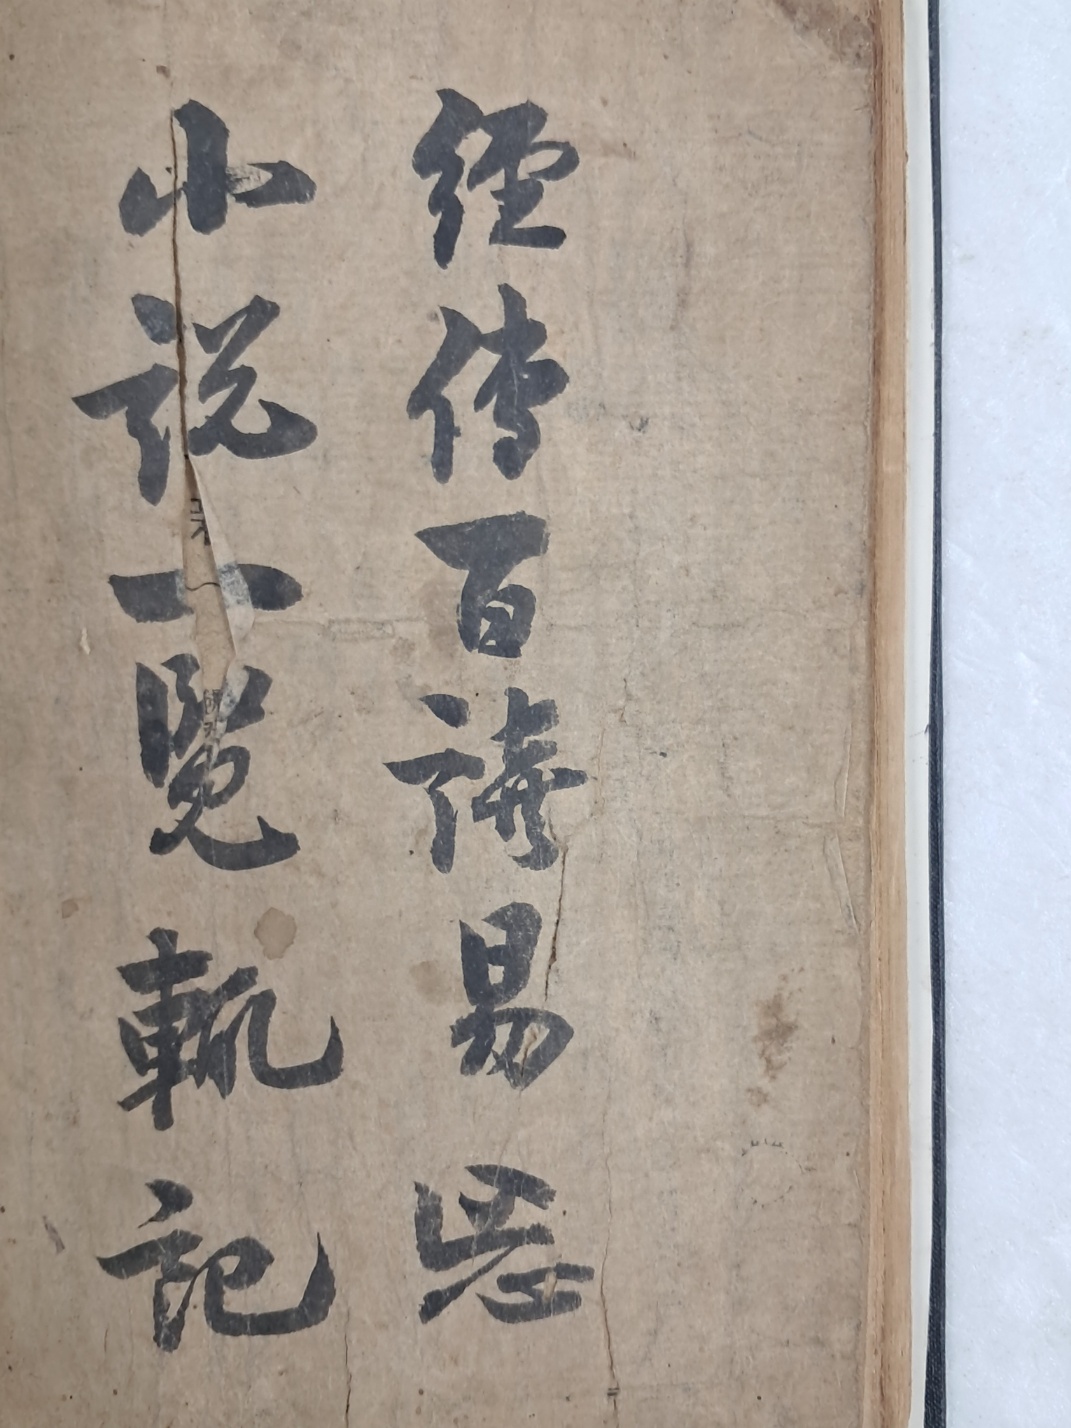 經傳百講易忘
小說一覽輒記